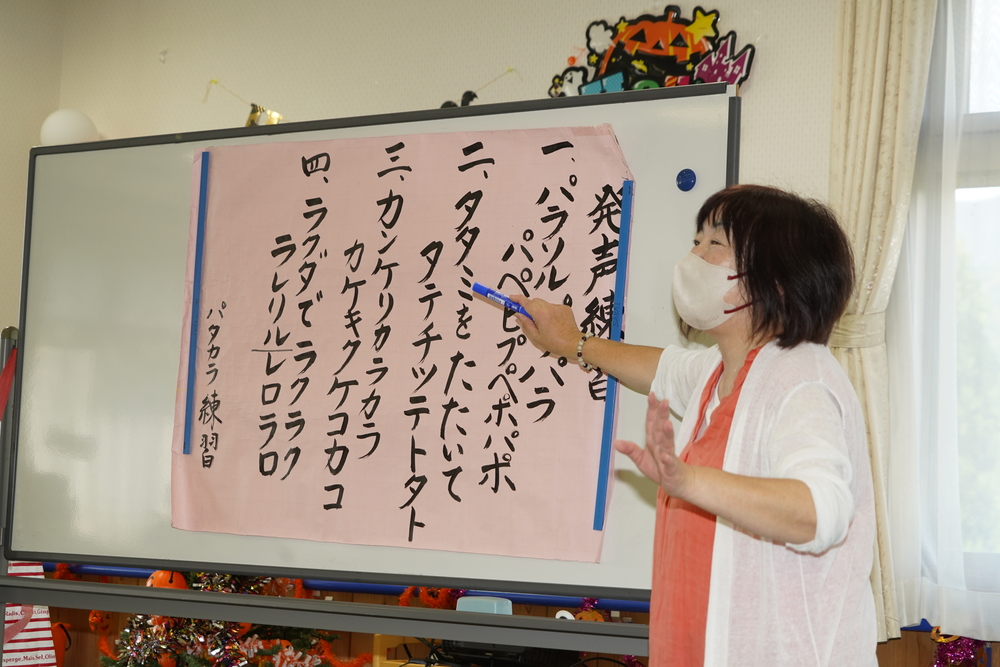 発声練習
一、パラソルパ パラ
パペピプペポパポ
二、タタミをたたいて
タテチツテトタト
三、カンケリカラカラ
カケキクケコカコ
四、ラクダでラクラク
ラレリルレロラロ
パタカラ練習